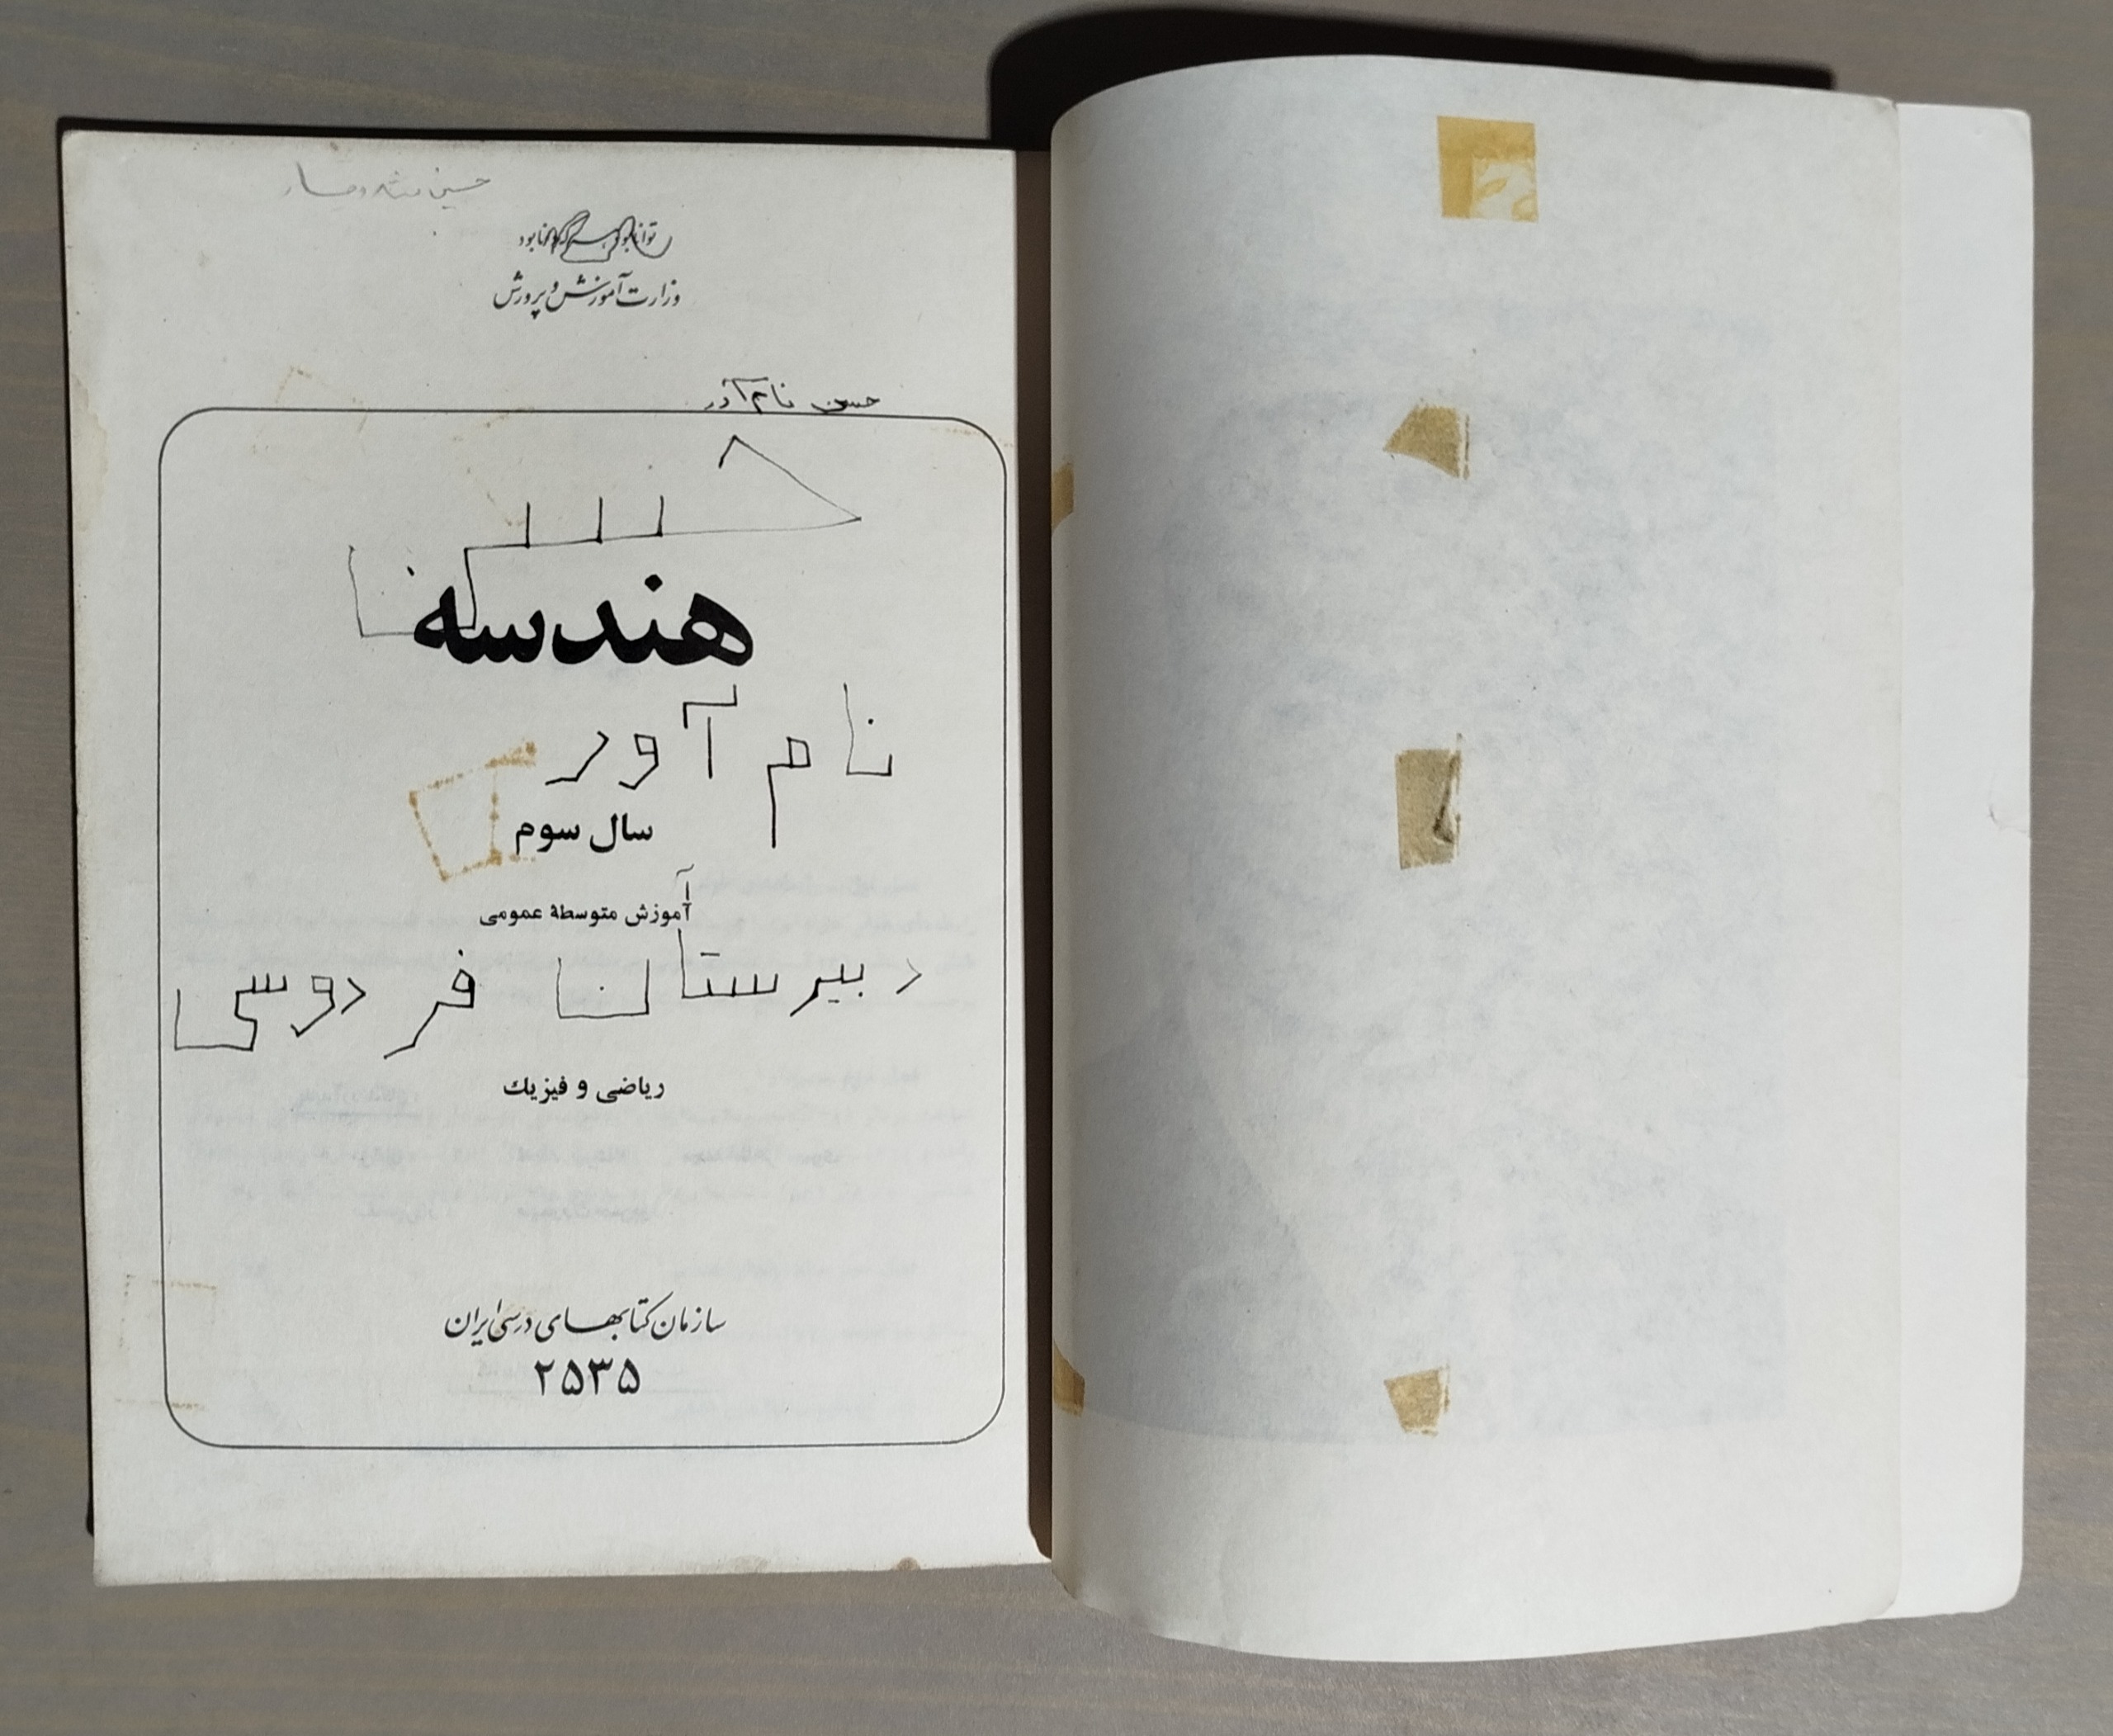 حسین
توانا بود هر که دانا بود
وزارت آموزش و پرورش
حسن نام آور
حسن
هندسه
نام آور
سال سوم
آموزش متوسطهٔ عمومی
دبیرستان فردوسی
ریاضی و فیزیك
سازمان کتابهای درسی ایران
۲۵۳۵